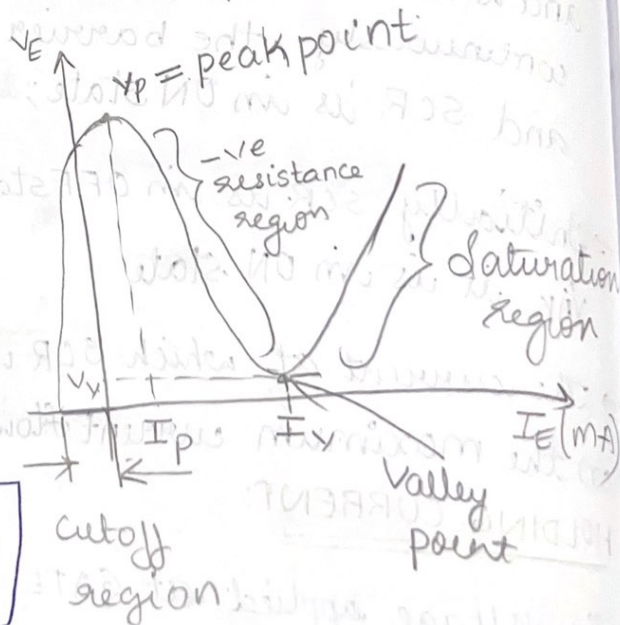 VE
VP = peak point
-ve
resistance
region
Saturation
region
Vv
IP
Iv
IE (mA)
Valley
point
cutoff
region